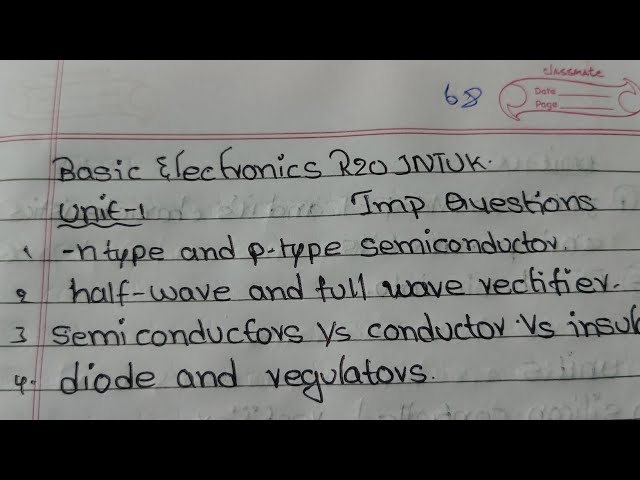 classmate
Date
Page
68
Basic Electronics R20 JNTUK.
Unit-1 Imp Questions
1 -n type and p-type semiconductor.
2 half-wave and full wave rectifier.
3 semiconductors Vs conductor Vs insul
4. diode and regulators.